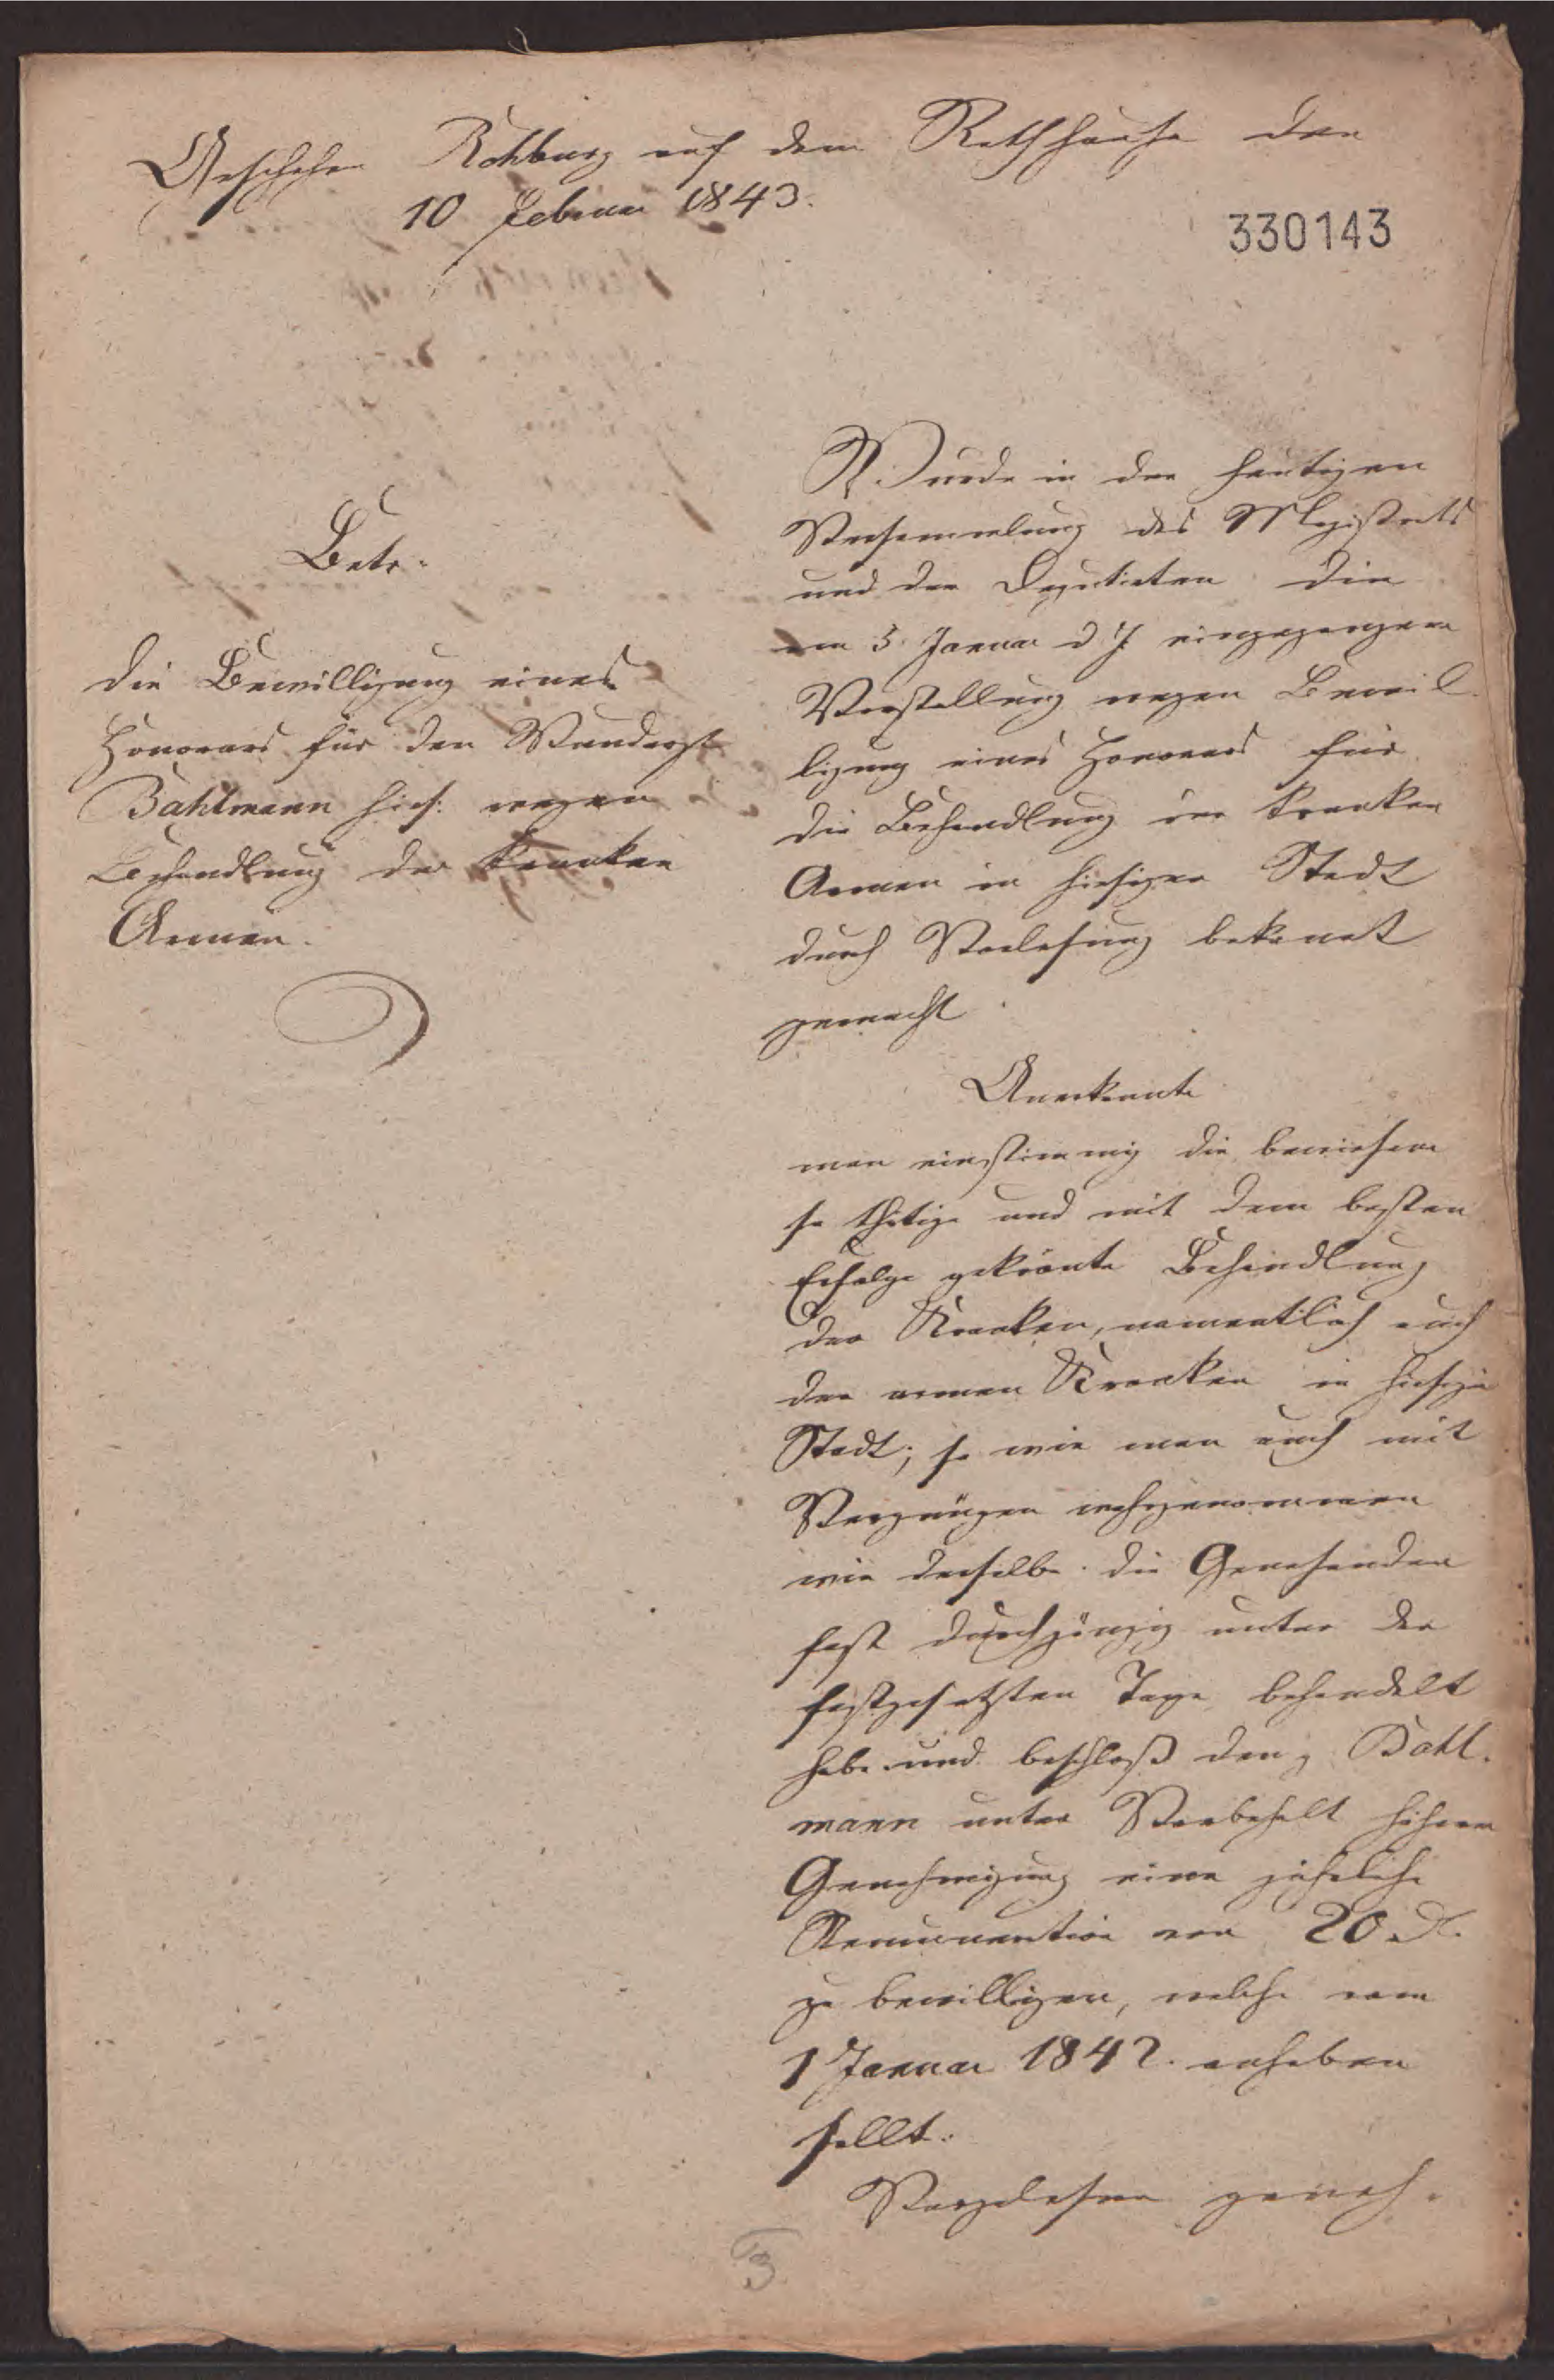 Geschehen Rehburg auf dem Rathhause den
10 Februar 1843.
330143
Betr.
die Bewilligung eines
Honorars für den Wundarzt
Bahlmann hies: wegen
Behandlung der kranken
Armen.
Wurde in der heutigen
Versammlung des Magistrats
und der Deputirten die
am 5. Januar d J. eingegangene
Vorstellung wegen Bewil
ligung eines Honorars für
die Behandlung der kranken
Armen in hiesiger Stadt
durch Vorlesung bekannt
gemacht
Anerkannte
man einstimmig die bewiesene
so thätige und mit dem besten
Erfolge gekrönte Behandlung
der Kranken, namentlich auch
der armen Kranken in hiesiger
Stadt; so wie man auch mit
Vergnügen wahrgenommen
wie derselbe die Genesenden
fast durchgängig unter der
festgesetzten Taxe behandelt
habe und beschloß den Bahl.
mann unter Vorbehalt höherer
Genehmigung eine jährliche
Remuneration von 20
zu bewilligen, welche vom
1 Januar 1842. anheben
sollte.
Vorgelesen geneh.
3